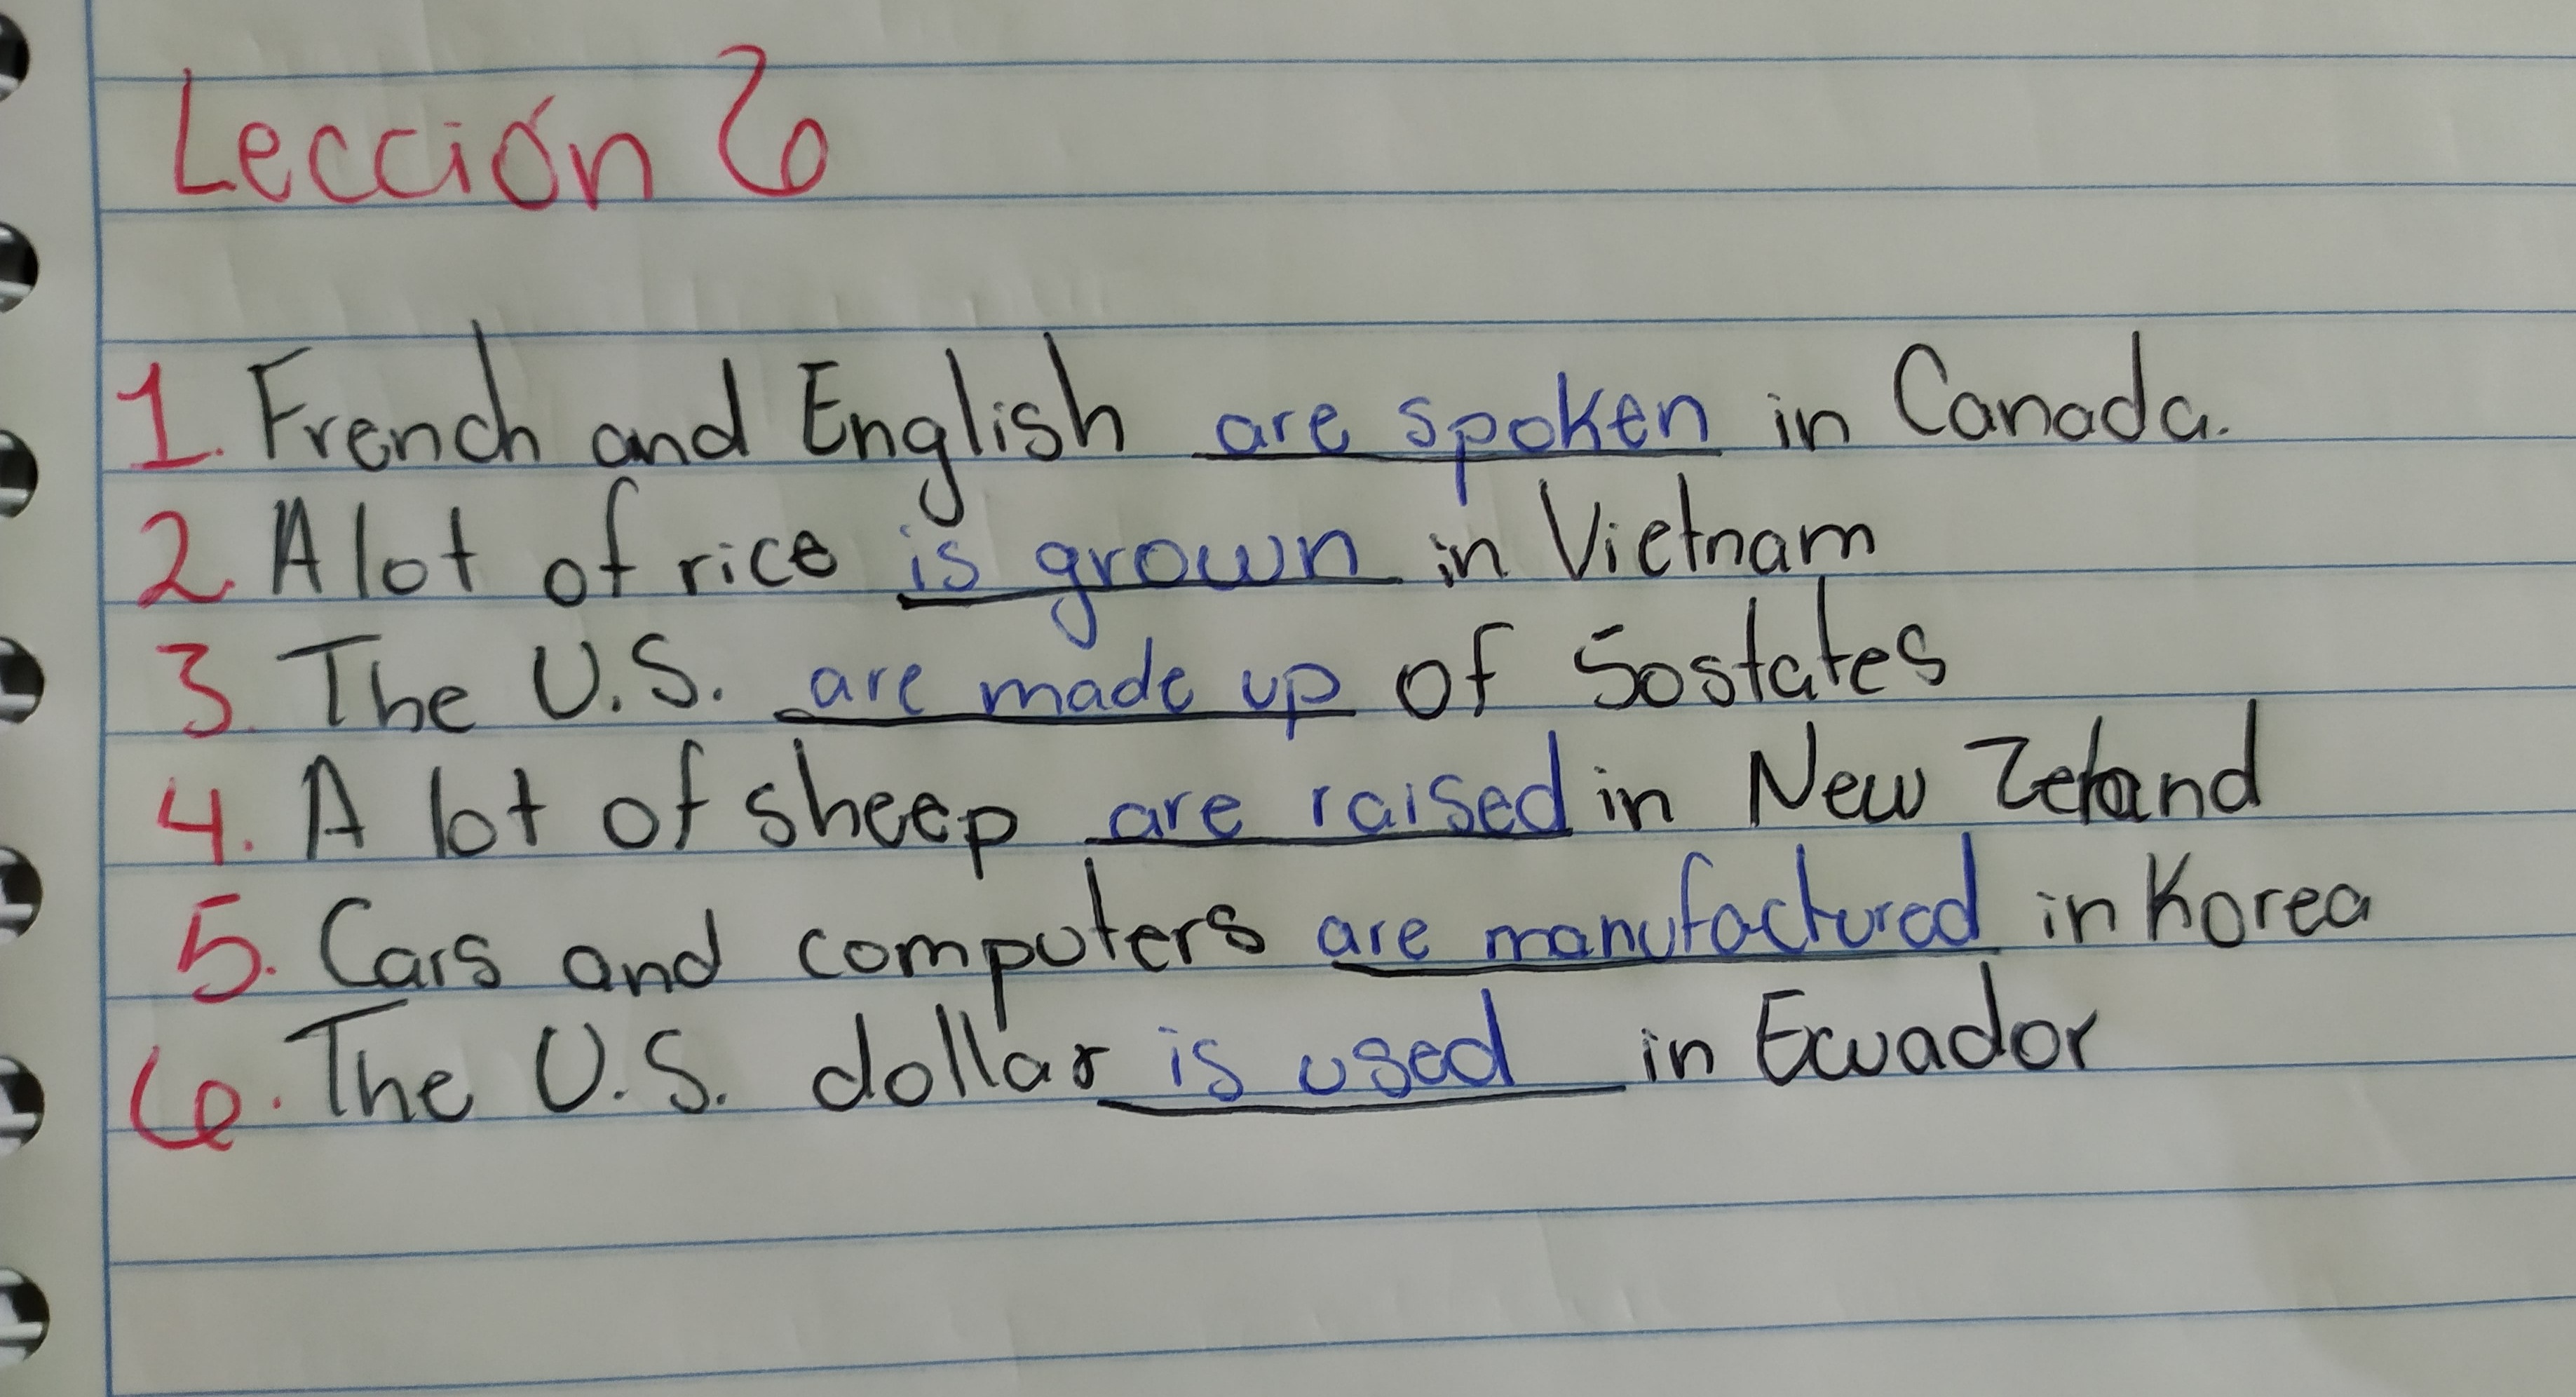 Lección 6
1. French and English are spoken in Canada.
2. A lot of rice is grown in Vietnam
3. The U.S. are made up of 50 states
4. A lot of sheep are raised in New Zeland
5. Cars and computers are manufactured in Korea
6. The U.S. dollar is used in Ecuador